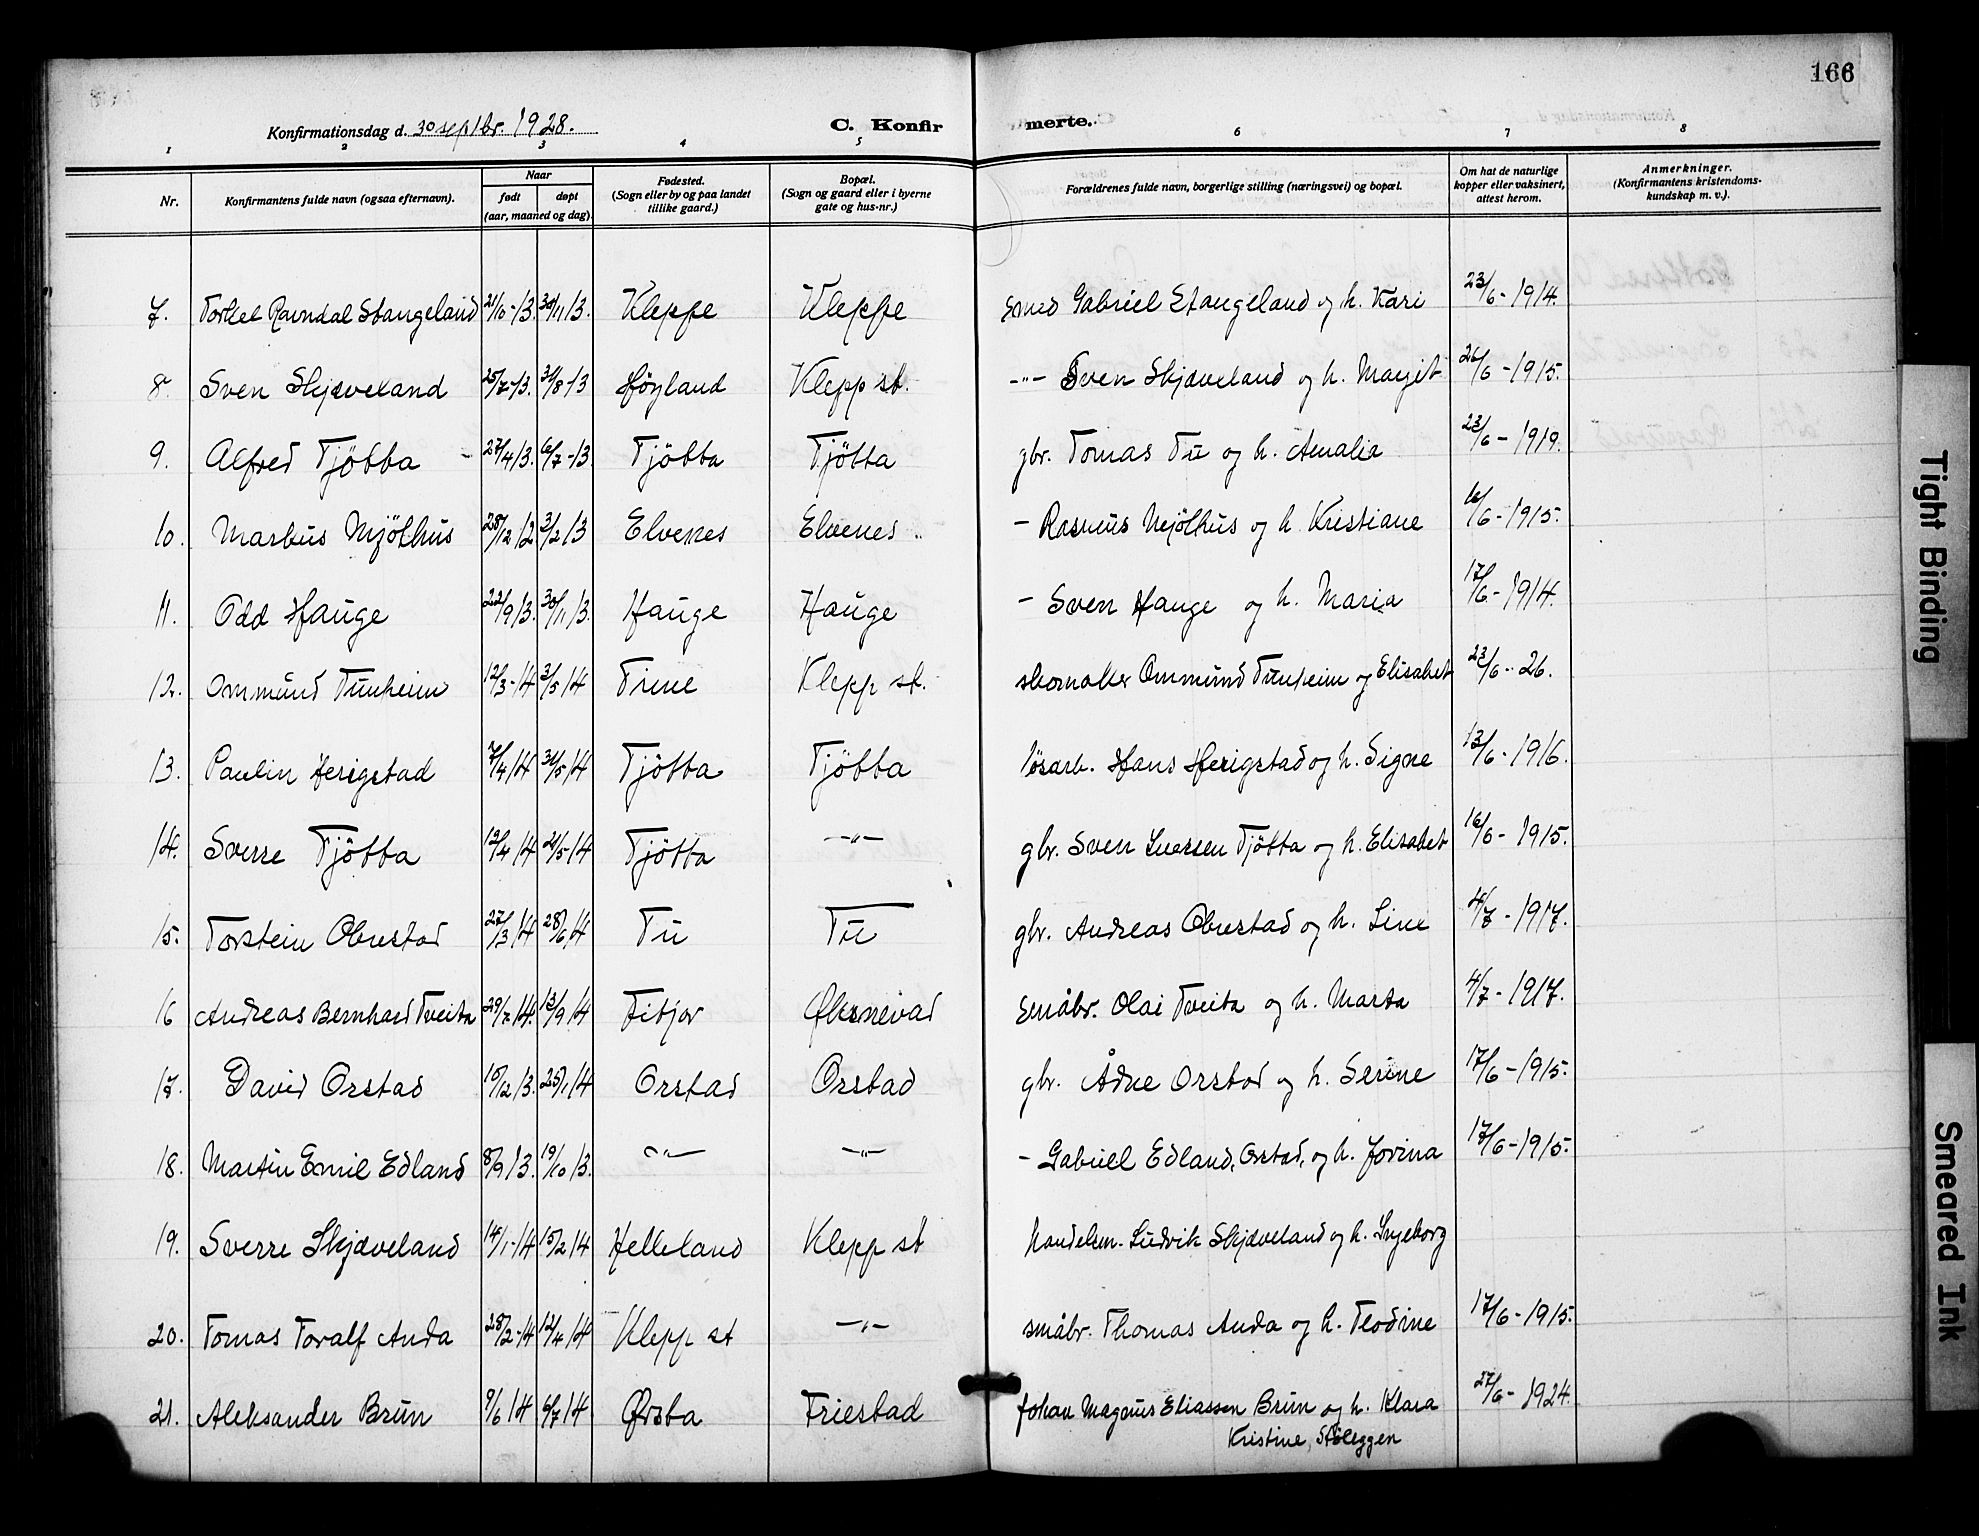 166
Konfirmationsdag d. 30 septbr. 1928.
C. Konfirmerte.
1 2 3 4 5 6 7 8
Nr. Konfirmantens fulde navn (ogsaa efternavn). Naar født døpt (aar, maaned og dag). Fødested. (Sogn eller by og paa landet tillike gaard.) Bopæl. (Sogn og gaard eller i byerne gate og hus-nr.) Forældrenes fulde navn, borgerlige stilling (næringsvei) og bopæl. Om hat de naturlige kopper eller vaksinert, attest herom. Anmerkninger. (Konfirmantens kristendomskundskap m. v.).
7. Torkel Ravndal Stangeland 21/10-13. 30/11 13. Kleppe Kleppe Smed Gabriel Stangeland og h. Kari 23/6-1914.
8. Sven Skjæveland 25/7-13. 31/8 13 Høyland Klepp st. -"- Sven Skjæveland og h. Margit 26/6-1915.
9. Alfred Tjøtta 27/4 13. 6/7-13. Tjøtta Tjøtta gbr. Tomas Tu og h. Amalia 23/6-1919.
10. Markus Mjølhus 28/12 12 3/2 13 Elvenes Elvenes - Rasmus Mjølhus og h. Kristiane 16/6-1915.
11. Odd Hauge 22/9 13. 30/11 13. Hauge Hauge - Sven Hauge og h. Maria 17/6-1914.
12. Ommund Tunheim 12/3-14 3/5 14 Time Klepp st. skomaker Ommund Tunheim og Elisabet 23/6-26.
13. Paulin Herigstad 7/4 14 31/5 14 Tjøtta Tjøtta løsarb. Hans Herigstad og h. Signe 13/6-1916.
14. Sverre Tjøtta 12/4 14 21/5 14 Tjøtta -"- gbr. Sven Ivarsen Tjøtta og h. Elisabet 16/6-1915.
15. Torstein Obrestad 27/3 14 28/6 14 Tu Tu gbr. Andreas Obrestad og h. Line 4/7-1917.
16 Andreas Bernhard Tveita 29/7 14. 13/9 14 Fitjor Øksnevad Småbr. Olai Tveita og h. Marta 4/7-1917.
17. David Orstad 15/12 13. 25/1 14 Orstad Orstad gbr. Ådne Orstad og h. Serine 17/6-1915.
18. Martin Emil Edland 8/9 13. 19/10 13. -"- -"- - Gabriel Edland, Orstad, og h. Jorina 17/6-1915.
19. Sverre Skjæveland 14/1-14 15/2 14 Helleland Klepp st handelsm. Ludvik Skjæveland og h. Ingeborg
20. Tomas Toralf Anda 28/2-14 12/4 14 Klepp st -"- småbr. Thomas Anda og h. Teodine 17/6-1915.
21. Aleksander Brun 9/6 14 6/7 14 Ørsta Friestad Johan Magnus Eliassen Brun og h. Klara 27/6-1924.
Kristine, Støleggen
Tight Binding
Smeared Ink